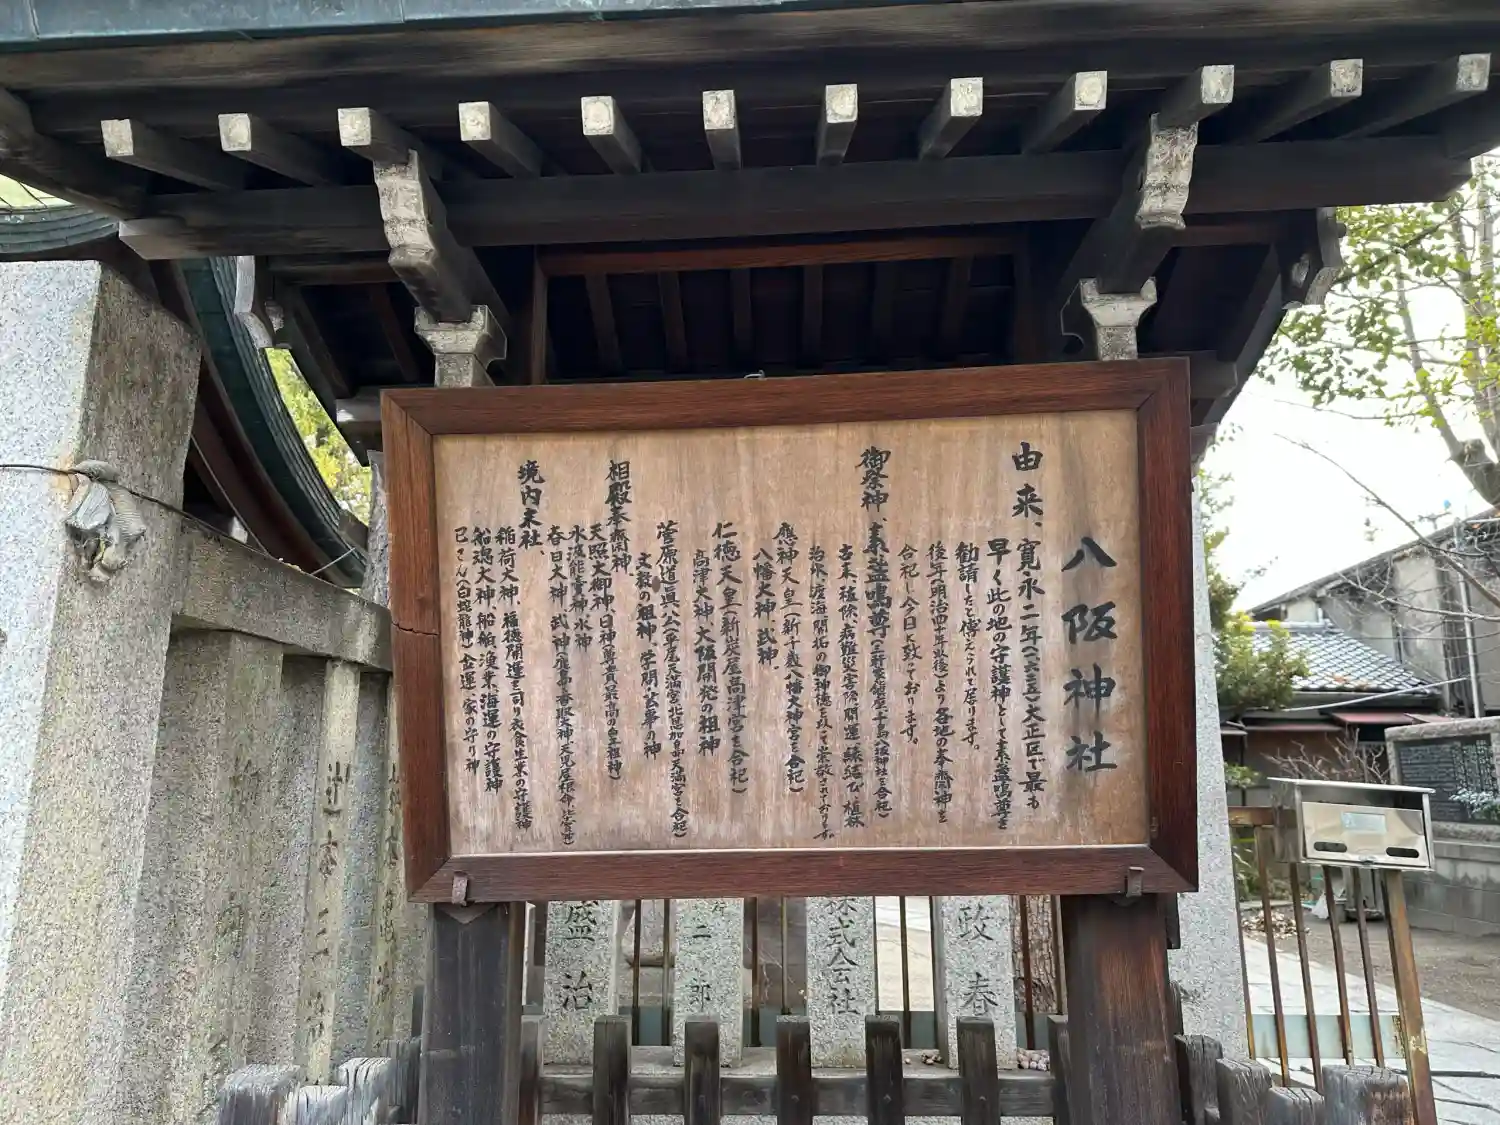 八阪神社
由来、寛永二年(一六二五)大正区で最も
早く此の地の守護神として素盞嗚尊を
勧請したと傳えられて居ります。
後年(明治四十年以後)より各地の奉齋神を
合祀し今日に致っております。
御祭神、素盞嗚尊(三軒家
千島八坂神社を合祀)
古来、植除、病難災害除、開運、縁結び、植林
為作、渡海開拓の御神徳を以て崇敬されております。
應神天皇(新千歳八幡大神宮を合祀)
八幡大神、武神、
仁徳天皇(新炭屋高津宮を合祀)
高津大神、大阪開発の祖神
菅原道真公(平尾天満宮、北恩加島天満宮を合祀)
文教の祖神、学問、公事の神
相殿奉齋神、
天照大御神、日神(尊貴最高の皇祖神)
水波能賣神、水神
春日大神、武神(鹿島、香取大神、天児屋根命、比売神)
境内末社、
稲荷大神、福徳開運を司り衣食生業の守護神
船魂大神、船舶、漁業、海運の守護神
巳さん(白蛇龍神)金運、家の守り神
盛治
二郎
株式会社
政春